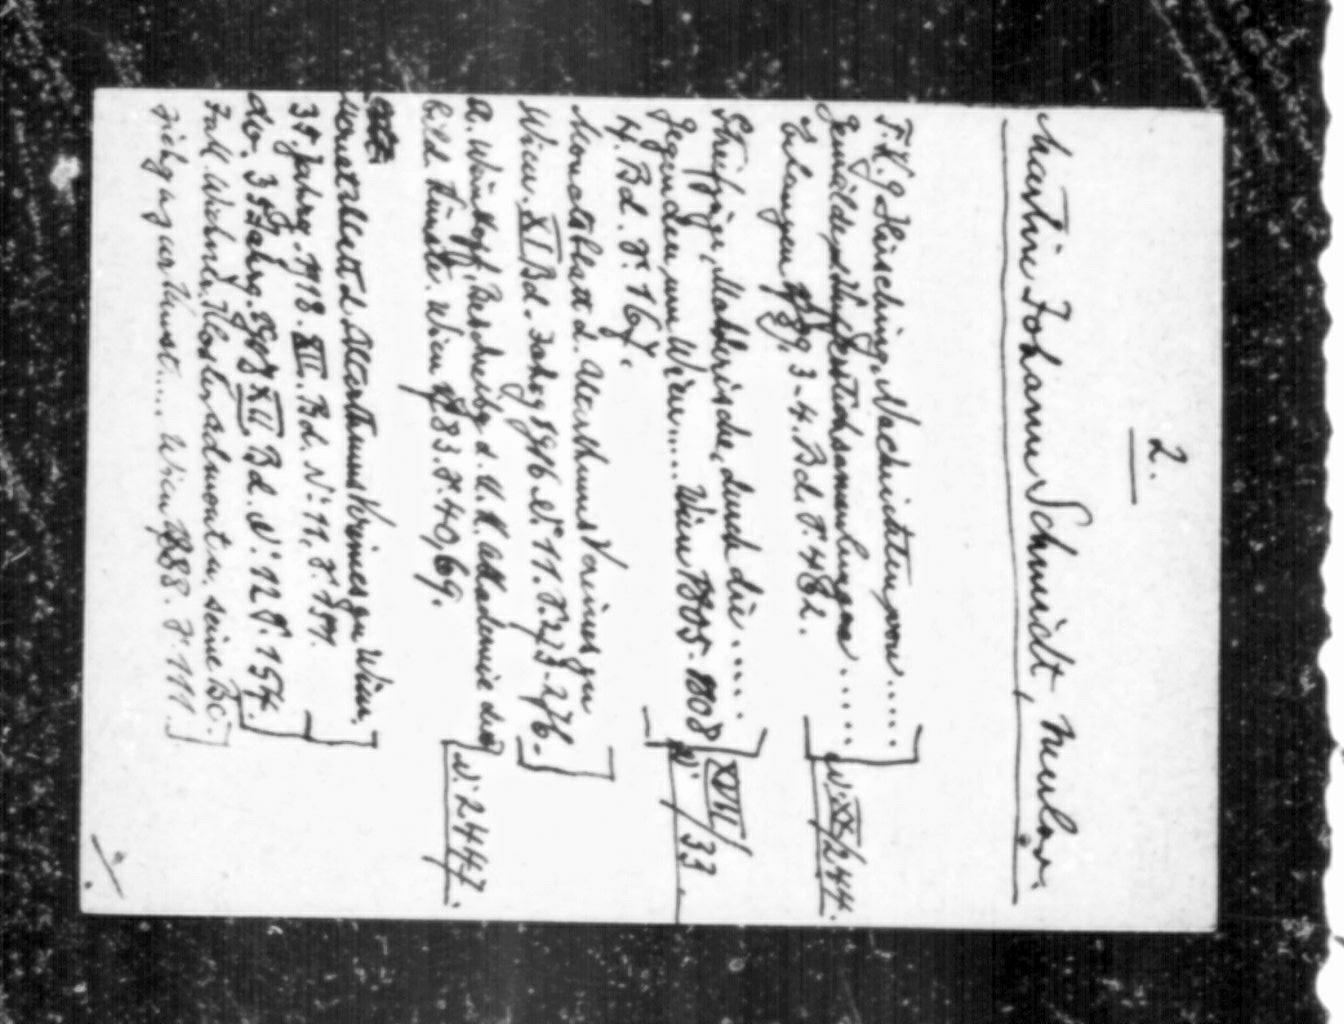 2.
Martin Johann Schmidt, Maler.
F. K. G. Hirsching, Nachrichten von .....
Gemälde u. Kupferstichsammlungen .....
Erlangen 1789. 3-4. Bd. S. 482. N: XX/244.
Streifzüge, Mahlerische, durch die .....
Gegenden um Wien .... Wien 1805-1808 XVII
4. Bd. S. 167. N: /33.
Monatsblatt d. Alterthums Vereines zu
Wien. XI Bd. Jahrg 1916. N: 11. S. 275-276.
A. Weinkopf, Beschreibg d. K. K. Akademie der
bild. Künste. Wien 1783. S. 40, 69. N: 2447.
Monatsblatt d. Alterthums Vereines zu Wien.
35. Jahrg. 1918. XII. Bd. N: 11, S. 151.
do. 35 Jahrg. 1918 XII. Bd. N: 12 S. 154.
Jak. Wichner, Kloster Admont u. seine Be-
ziehg zur Kunst .... Wien 1888. S. 111.